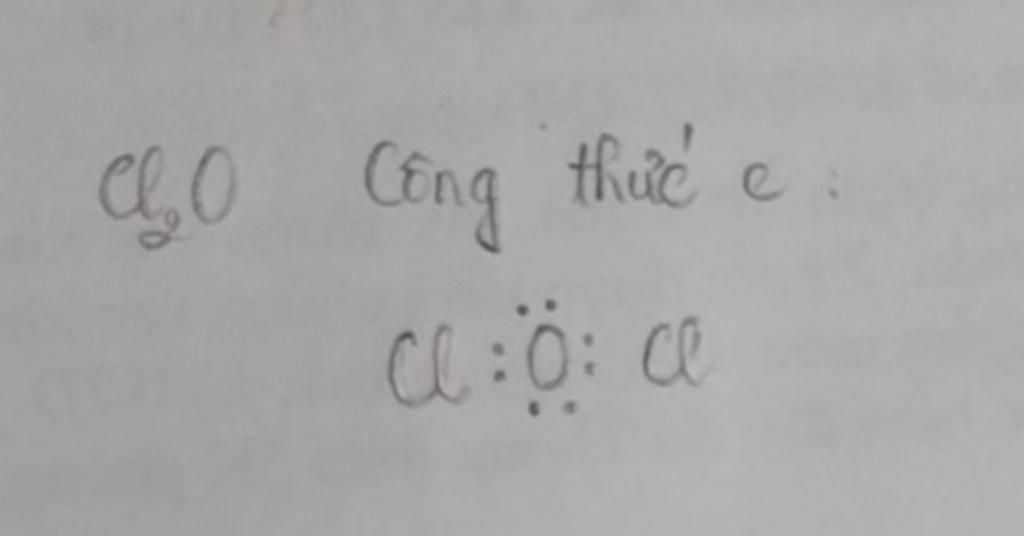 Cl₂O Công thức e :
Cl : Ö : Cl